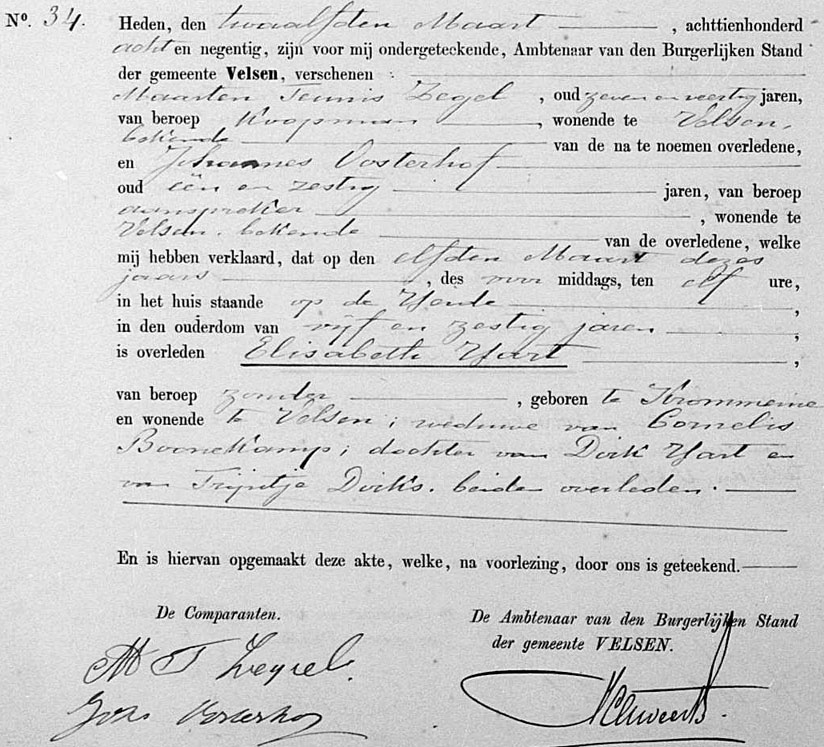 No. 34. Heden, den twaalfden Maart, achttienhonderd
acht en negentig, zijn voor mij ondergeteekende, Ambtenaar van den Burgerlijken Stand
der gemeente Velsen, verschenen :
Maarten Teunis Zegel, oud zeven en veertig jaren,
van beroep Koopman, wonende te Velsen,
bekende van de na te noemen overledene,
en Johannes Oosterhof
oud een en zestig jaren, van beroep
aanspreker, wonende te
Velsen. bekende van de overledene, welke
mij hebben verklaard, dat op den elfden Maart dezes
jaars, des voor middags, ten elf ure,
in het huis staande op de Heide,
in den ouderdom van vijf en zestig jaren,
is overleden Elisabeth Hart,
van beroep zonder, geboren te Krommenie
en wonende te Velsen; weduwe van Cornelis
Boonekamp; dochter van Dirk Hart en
van Trijntje Dirks. beiden overleden.
En is hiervan opgemaakt deze akte, welke, na voorlezing, door ons is geteekend.
De Comparanten. De Ambtenaar van den Burgerlijken Stand
der gemeente VELSEN.
M T Zegel.
Joh Oosterhof